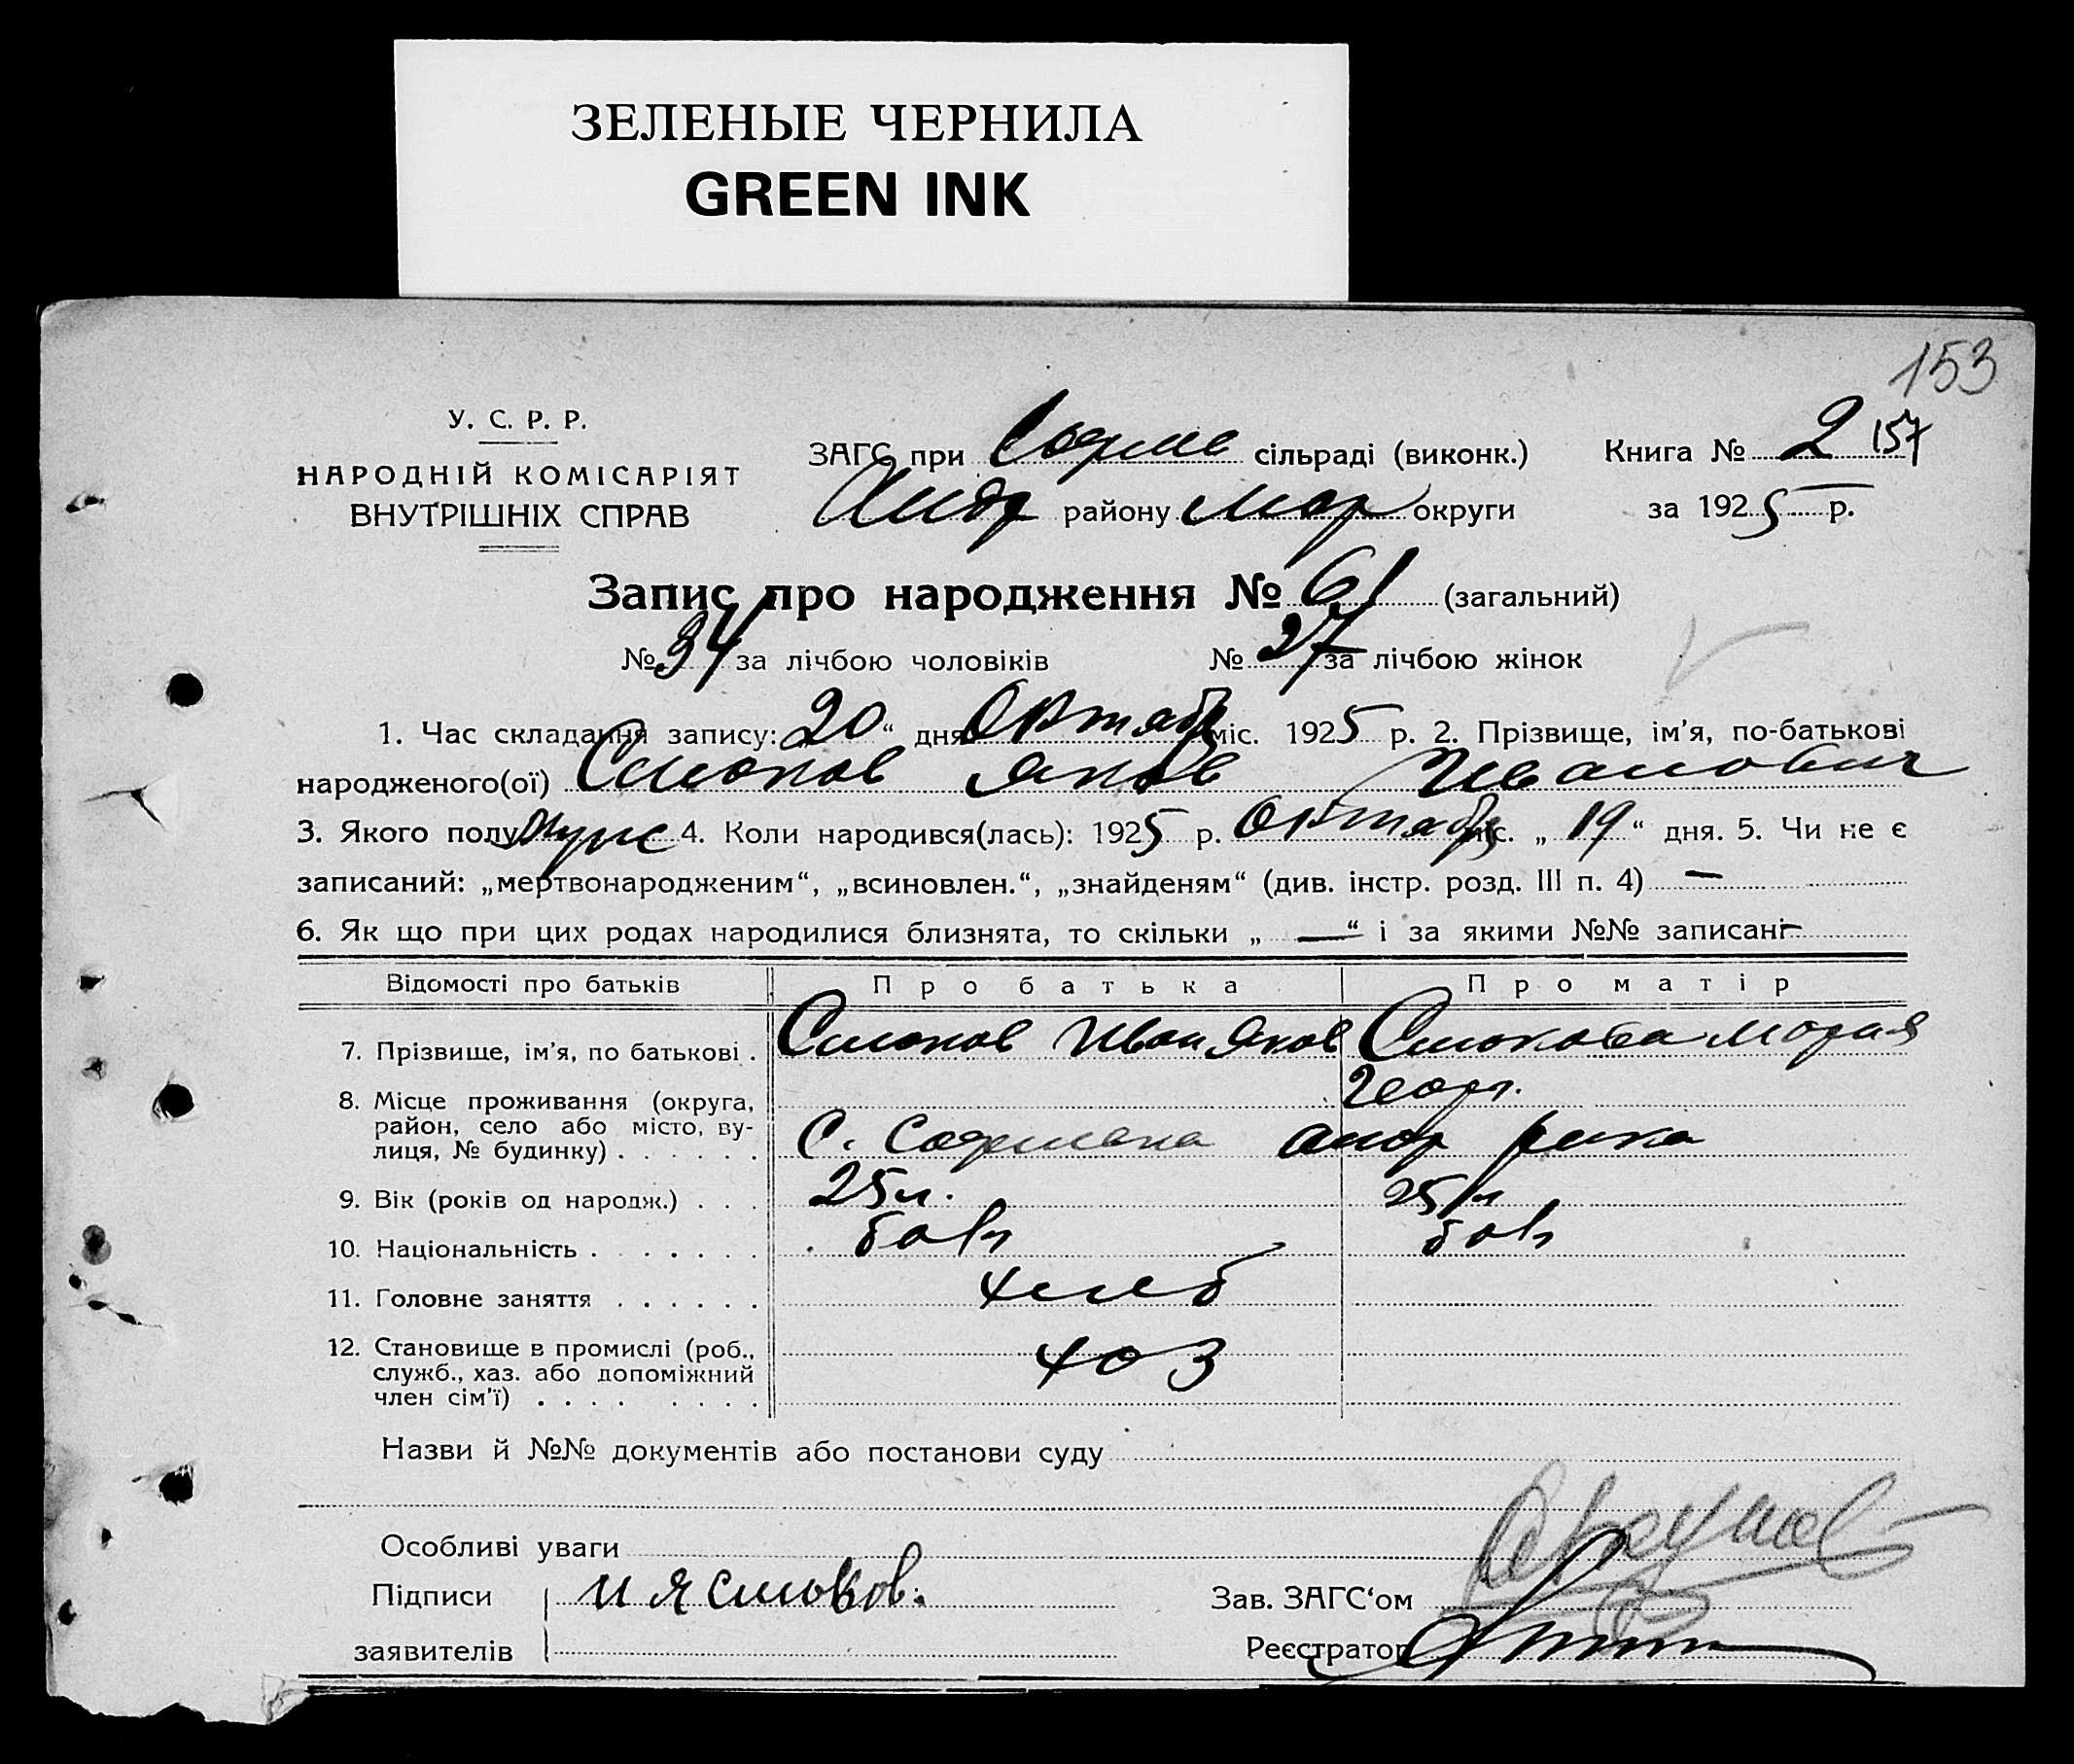 ЗЕЛЕНЫЕ ЧЕРНИЛА
GREEN INK
153
У. С. Р. Р.
НАРОДНІЙ КОМІСАРІЯТ
ВНУТРІШНІХ СПРАВ
ЗАГС при Софие сільраді (виконк.) Книга № 2 157
Андр району Мар округи за 1925 р.
Запис про народження № 61 (загальний)
№ 34 за лічбою чоловіків № 27 за лічбою жінок
1. Час складання запису: „20“ дня Октябр міс. 1925 р. 2. Прізвище, ім'я, по-батькові
народженого(ої) Смоков Яков Иванович
3. Якого полу Муж 4. Коли народився(лась): 1925 р. Октябр міс. „19“ дня. 5. Чи не є
записаний: „мертвонародженим“, „всиновлен.“, „знайденям“ (див. інстр. розд. III п. 4) —
6. Як що при цих родах народилися близнята, то скільки „—“ і за якими №№ записані —
Відомості про батьків Про батька Про матір
7. Прізвище, ім'я, по батькові . Смоков Иван Яков Смокова Мария
Георг.
8. Місце проживання (округа,
район, село або місто, ву-
лиця, № будинку) . . . . . . С. Софиевка Андр рика
9. Вік (років од народж.) . . . 25 л. 25 л
10. Національність . . . . . . . болг болг
11. Головне заняття . . . . . . хлеб
12. Становище в промислі (роб.,
служб., хаз. або допоміжний
член сім'ї) . . . . . . . . хоз
Назви й №№ документів або постанови суду
Особливі уваги
Підписи И Я Смоков. Зав. ЗАГС'ом
заявителів Реєстратор